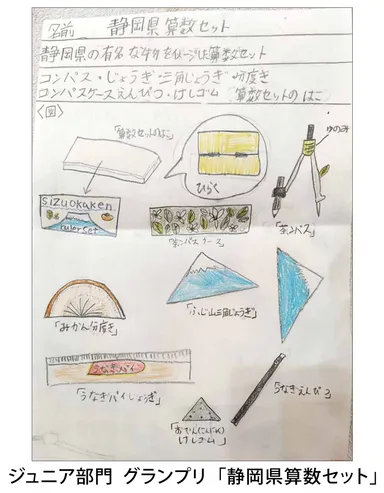 名前 静岡県算数セット
静岡県の有名な物をイメージした算数セット
コンパス・じょうぎ・三角じょうぎ・分度き
コンパスケースえんぴつ・けしゴム 算数セットのはこ
〈図〉
「算数セットのはこ」
ひらく
ゆのみ
sizuokaken
rulerset
「茶ンパスケース」
「茶ンパス」
「みかん分度き」
「ふじ山三角じょうぎ」
うなぎパイ
「うなぎパイじょうぎ」
うなぎえんぴつ
「おでん(こんにゃく)
けしゴム」
ジュニア部門 グランプリ「静岡県算数セット」